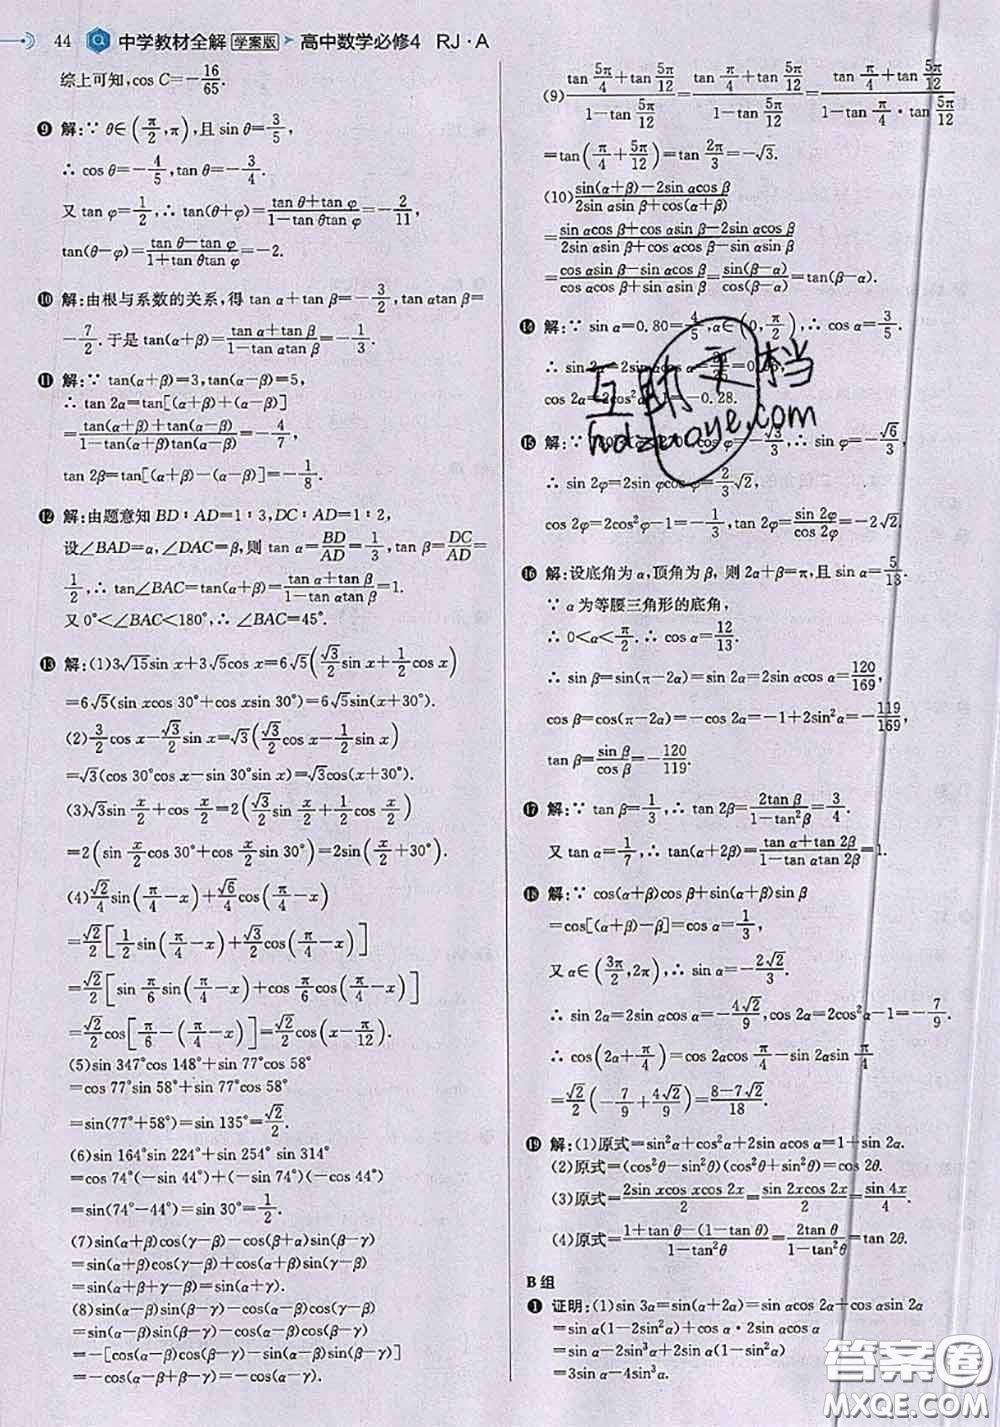 44 中学教材全解 学案版 高中数学必修4 RJ·A
综上可知,cos C=-16/65.
❾ 解:∵ θ∈(π/2,π),且 sin θ=3/5,
∴ cos θ=-4/5,tan θ=-3/4.
又 tan φ=1/2,∴ tan(θ+φ)=(tan θ+tan φ)/(1-tan θtan φ)=-2/11,
tan(θ-φ)=(tan θ-tan φ)/(1+tan θtan φ)=-2.
❿ 解:由根与系数的关系,得 tan α+tan β=-3/2,tan αtan β=
-7/2.于是 tan(α+β)=(tan α+tan β)/(1-tan αtan β)=-1/3.
⓫ 解:∵ tan(α+β)=3,tan(α-β)=5,
∴ tan 2α=tan[(α+β)+(α-β)]
=(tan(α+β)+tan(α-β))/(1-tan(α+β)tan(α-β))=-4/7,
tan 2β=tan[(α+β)-(α-β)]=-1/8.
⓬ 解:由题意知 BD∶AD=1∶3,DC∶AD=1∶2,
设∠BAD=α,∠DAC=β,则 tan α=BD/AD=1/3,tan β=DC/AD=
1/2,∴ tan∠BAC=tan(α+β)=(tan α+tan β)/(1-tan αtan β)=1.
又 0°<∠BAC<180°,∴ ∠BAC=45°.
⓭ 解:(1)3√15sin x+3√5cos x=6√5(√3/2sin x+1/2cos x)
=6√5(sin xcos 30°+cos xsin 30°)=6√5sin(x+30°).
(2)3/2cos x-√3/2sin x=√3(√3/2cos x-1/2sin x)
=√3(cos 30°cos x-sin 30°sin x)=√3cos(x+30°).
(3)√3sin x/2+cos x/2=2(√3/2sin x/2+1/2cos x/2)
=2(sin x/2cos 30°+cos x/2sin 30°)=2sin(x/2+30°).
(4)√2/4sin(π/4-x)+√6/4cos(π/4-x)
=√2/2[1/2sin(π/4-x)+√3/2cos(π/4-x)]
=√2/2[sin π/6sin(π/4-x)+cos π/6cos(π/4-x)]
=√2/2cos[π/6-(π/4-x)]=√2/2cos(x-π/12).
(5)sin 347°cos 148°+sin 77°cos 58°
=cos 77°sin 58°+sin 77°cos 58°
=sin(77°+58°)=sin 135°=√2/2.
(6)sin 164°sin 224°+sin 254° sin 314°
=cos 74°(-sin 44°)+(-sin 74°)(-cos 44°)
=sin(74°-44°)=sin 30°=1/2.
(7)sin(α+β)cos(γ-β)-cos(β+α)sin(β-γ)
=sin(α+β)cos(γ-β)+cos(β+α)sin(γ-β)
=sin(α+β+γ-β)=sin(α+γ).
(8)sin(α-β)sin(β-γ)-cos(α-β)cos(γ-β)
=sin(α-β)sin(β-γ)-cos(α-β)cos(β-γ)
=-[cos(α-β)cos(β-γ)-sin(α-β)sin(β-γ)]
=-cos(α-β+β-γ)=-cos(α-γ).
(9)(tan 5π/4+tan 5π/12)/(1-tan 5π/12)=(tan π/4+tan 5π/12)/(1-tan 5π/12)=(tan π/4+tan 5π/12)/(1-tan π/4·tan 5π/12)
=tan(π/4+5π/12)=tan 2π/3=-√3.
(10)(sin(α+β)-2sin αcos β)/(2sin αsin β+cos(α+β))
=(sin αcos β+cos αsin β-2sin αcos β)/(2sin αsin β+cos αcos β-sin αsin β)
=(cos αsin β-sin αcos β)/(cos αcos β+sin αsin β)=sin(β-α)/cos(β-α)=tan(β-α).
⓮ 解:∵ sin α=0.80=4/5,α∈(0,π/2),∴ cos α=3/5.
∴ sin 2α=2sin αcos α=
cos 2α=2cos²α-1=-0.28.
⓯ 解:∵ cos φ=-√3/3,∴ sin φ=-√6/3.
∴ sin 2φ=2sin φcos φ=2/3√2,
cos 2φ=2cos²φ-1=-1/3,tan 2φ=sin 2φ/cos 2φ=-2√2.
⓰ 解:设底角为 α,顶角为 β,则 2α+β=π,且 sin α=5/13.
∵ α 为等腰三角形的底角,
∴ 0<α<π/2.∴ cos α=12/13.
∴ sin β=sin(π-2α)=sin 2α=2sin αcos α=120/169,
cos β=cos(π-2α)=-cos 2α=-1+2sin²α=-119/169,
tan β=sin β/cos β=-120/119.
⓱ 解:∵ tan β=1/3,∴ tan 2β=2tan β/(1-tan²β)=3/4.
又 tan α=1/7,∴ tan(α+2β)=(tan α+tan 2β)/(1-tan αtan 2β)=1.
⓲ 解:∵ cos(α+β)cos β+sin(α+β)sin β
=cos[(α+β)-β]=cos α=1/3,
又 α∈(3π/2,2π),∴ sin α=-2√2/3.
∴ sin 2α=2sin αcos α=-4√2/9,cos 2α=2cos²α-1=-7/9.
∴ cos(2α+π/4)=cos 2αcos π/4-sin 2αsin π/4
=√2/2(-7/9+4√2/9)=(8-7√2)/18.
⓳ 解:(1)原式=sin²α+cos²α+2sin αcos α=1+sin 2α.
(2)原式=(cos²θ-sin²θ)(cos²θ+sin²θ)=cos 2θ.
(3)原式=2sin xcos xcos 2x/2=sin 2xcos 2x/2=sin 4x/4.
(4)原式=(1+tan θ-(1-tan θ))/(1-tan²θ)=2tan θ/(1-tan²θ)=tan 2θ.
B 组
❶ 证明:(1)sin 3α=sin(α+2α)=sin αcos 2α+cos αsin 2α
=sin α(1-2sin²α)+cos α·2sin αcos α
=sin α-2sin³α+2sin α(1-sin²α)
=3sin α-4sin³α.
互助文档
hdzuoye.com
答案圈
MXQE.COM